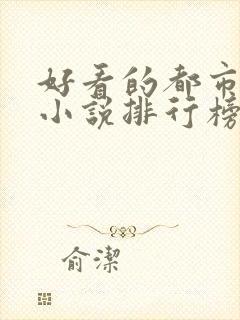 好看的都市
小说排行榜
俞潔